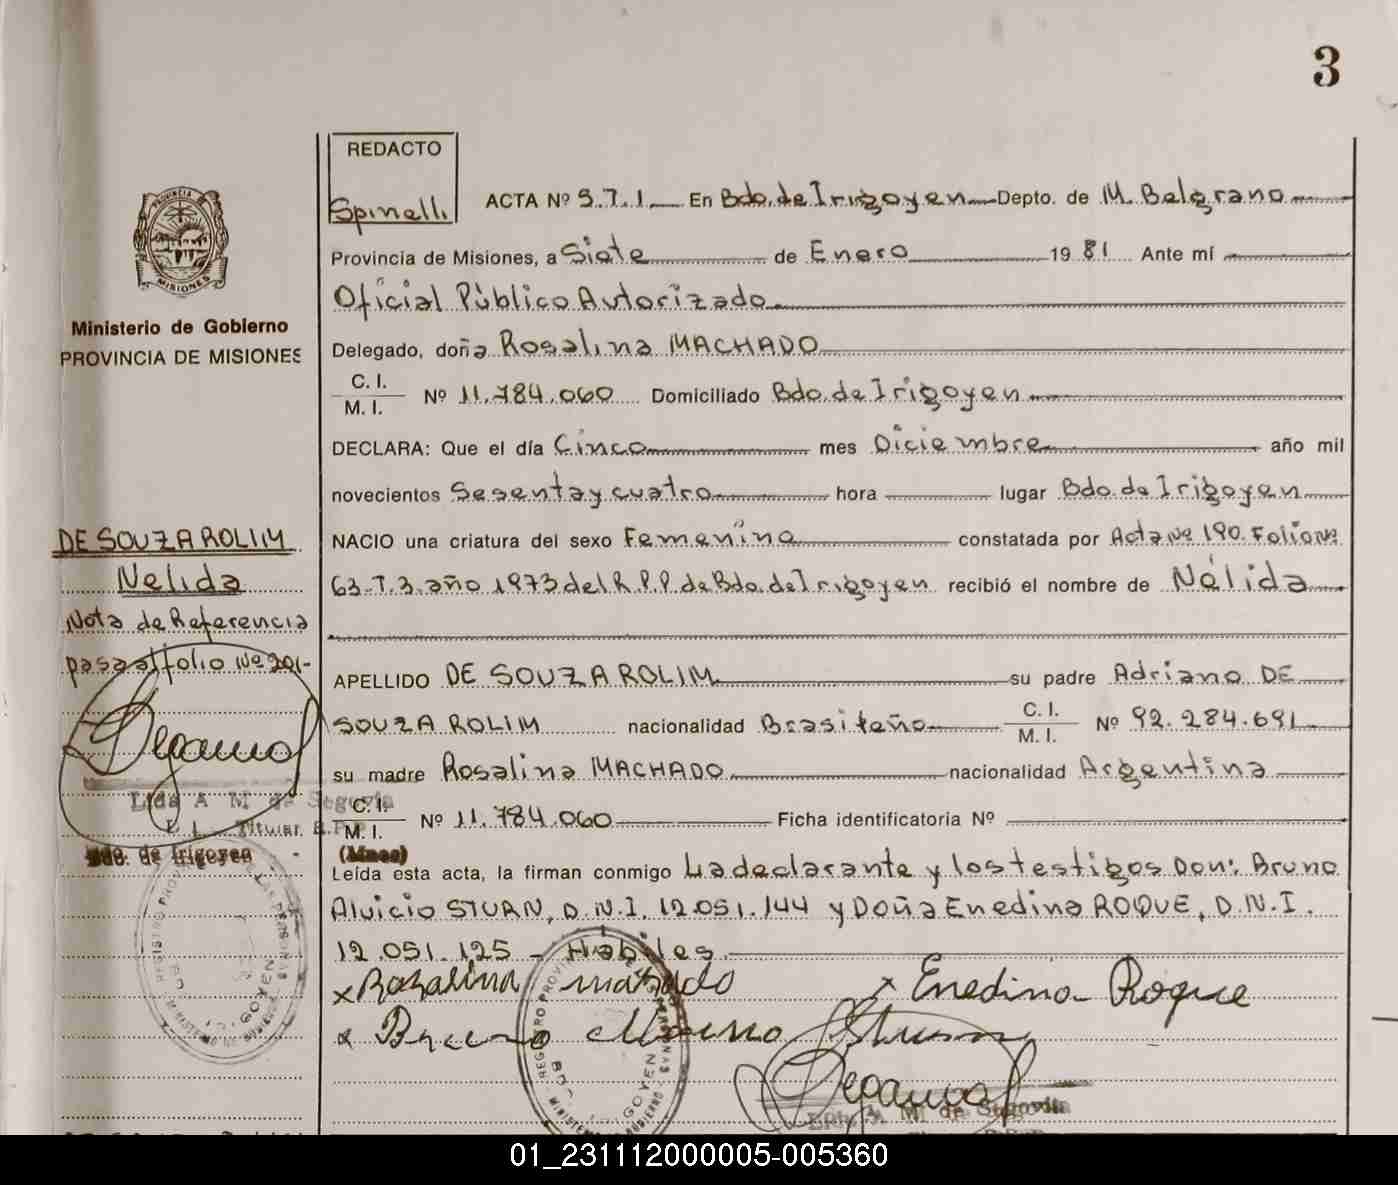 3
REDACTO
Spinelli
ACTA Nº 571 En Bdo. de Irigoyen Depto. de M. Belgrano
Provincia de Misiones, a Siete de Enero 1981 Ante mí
Oficial Público Autorizado
Delegado, doña Rosalina MACHADO
C. I.
M. I. Nº 11.784.060 Domiciliado Bdo. de Irigoyen
DECLARA: Que el día Cinco mes Diciembre año mil
novecientos Sesenta y cuatro hora lugar Bdo. de Irigoyen
NACIO una criatura del sexo Femenino constatada por Acta Nº 190. Folio Nº
63-T.3. año 1973 del R.P.P. de Bdo. de Irigoyen recibió el nombre de Nélida
APELLIDO DE SOUZA ROLIM su padre Adriano DE
SOUZA ROLIM nacionalidad Brasileño C. I. M. I. Nº 92.284.691
su madre Rosalina MACHADO nacionalidad Argentina
C. I.
M. I. Nº 11.784.060 Ficha identificatoria Nº
Leída esta acta, la firman conmigo La declarante y los testigos Don: Bruno
Aluicio STURN, D.N.I. 12.051.144 y Doña Enedina ROQUE, D.N.I.
12.051.125 - Hábiles
x Rosalina machado x Enedina Roque
x Bruno Sturm
A. M. de Segovia
PROVINCIA
MISIONES
Ministerio de Gobierno
PROVINCIA DE MISIONES
DE SOUZA ROLIM
Nelida
Nota de Referencia
pasa al folio Nº 201-
Lida A M de Segovia
Titular
Bdo. de Irigoyen
(Mnes)
01_231112000005-005360